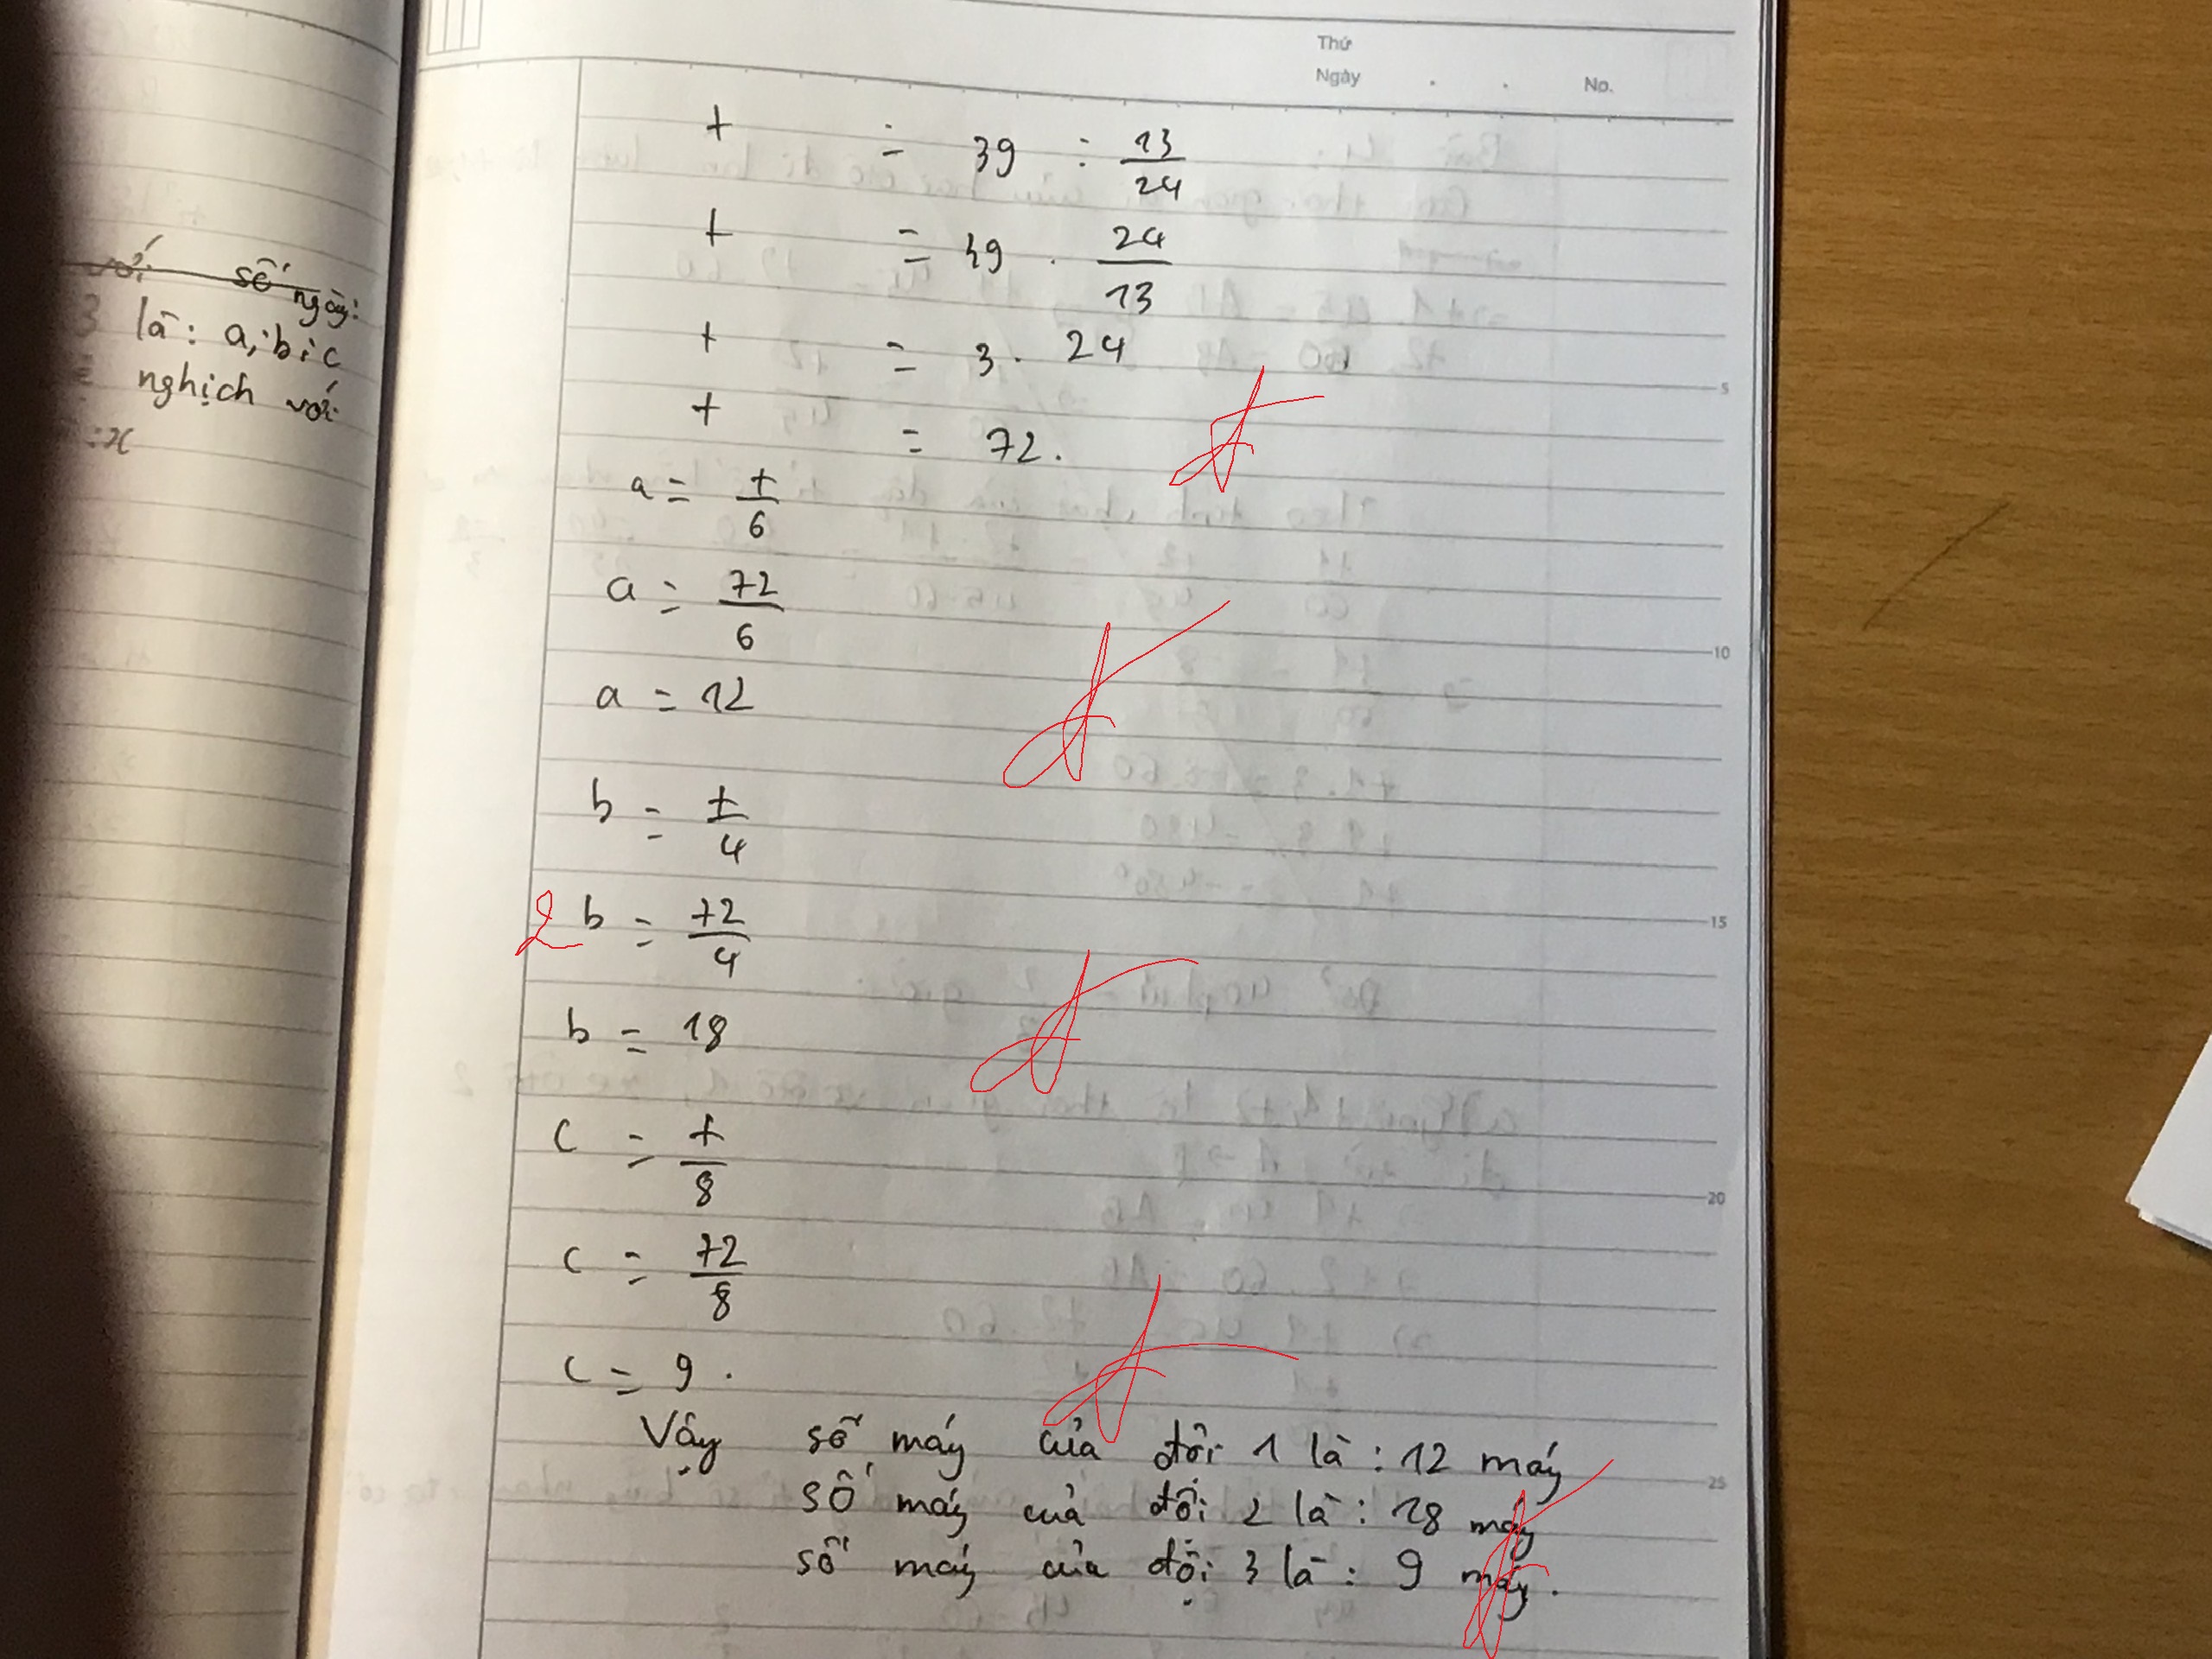 Thứ
Ngày . . No.
số ngày:
3 là: a; b; c
nghịch với
:x
t = 39 : 13/24
t = 39 . 24/13
t = 3 . 24
t = 72.
a = t/6
a = 72/6
a = 12
b = t/4
2 b = 72/4
b = 18
c = t/8
c = 72/8
c = 9.
Vậy số máy của đội 1 là: 12 máy
số máy của đội 2 là: 18 máy
số máy của đội 3 là: 9 máy.
5
10
15
20
25